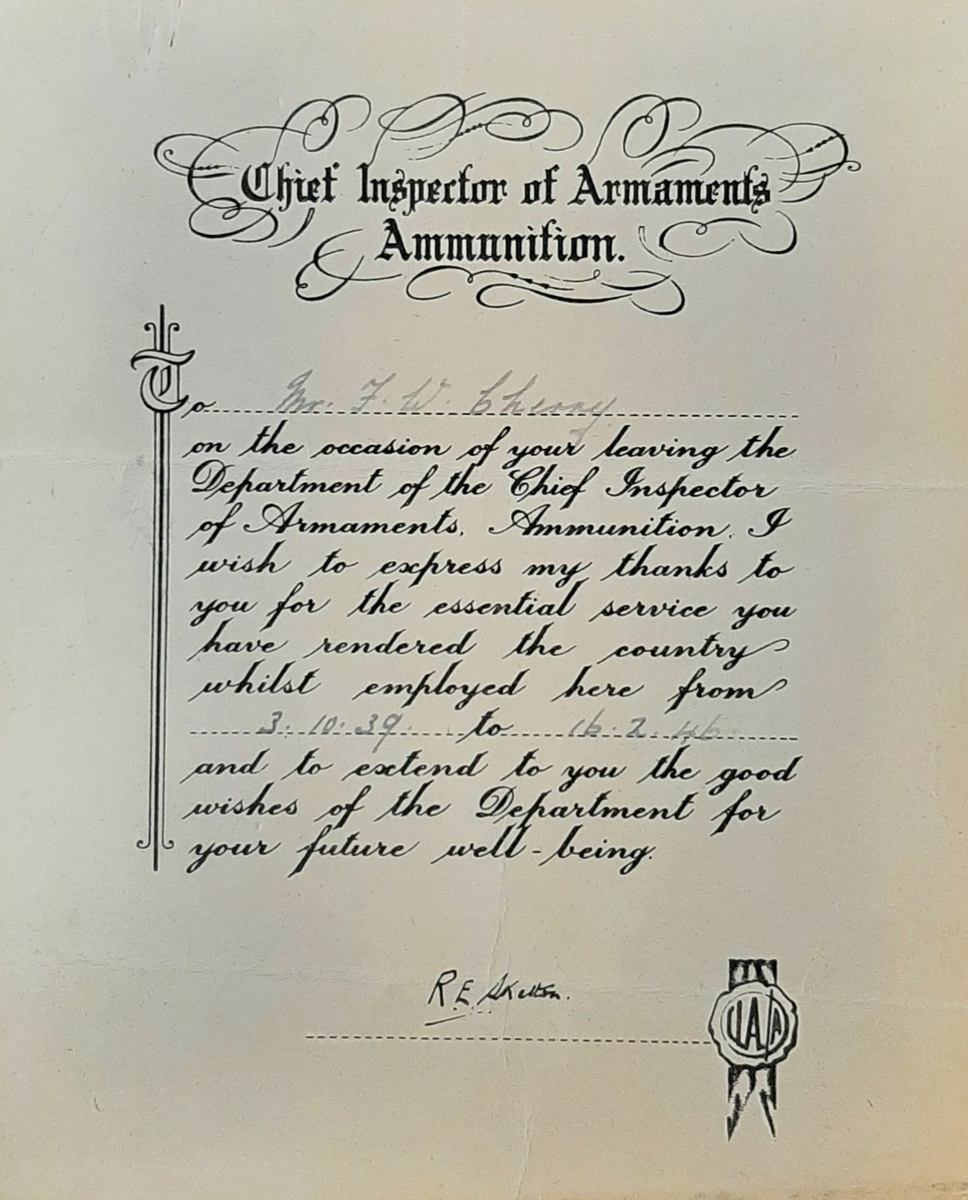 Chief Inspector of Armaments
Ammunition.
To Mr. F. W. Cherry
on the occasion of your leaving the
Department of the Chief Inspector
of Armaments, Ammunition, I
wish to express my thanks to
you for the essential service you
have rendered the country
whilst employed here from
3.10.39. to 16.2.46.
and to extend to you the good
wishes of the Department for
your future well-being.
R.E. Skelton.